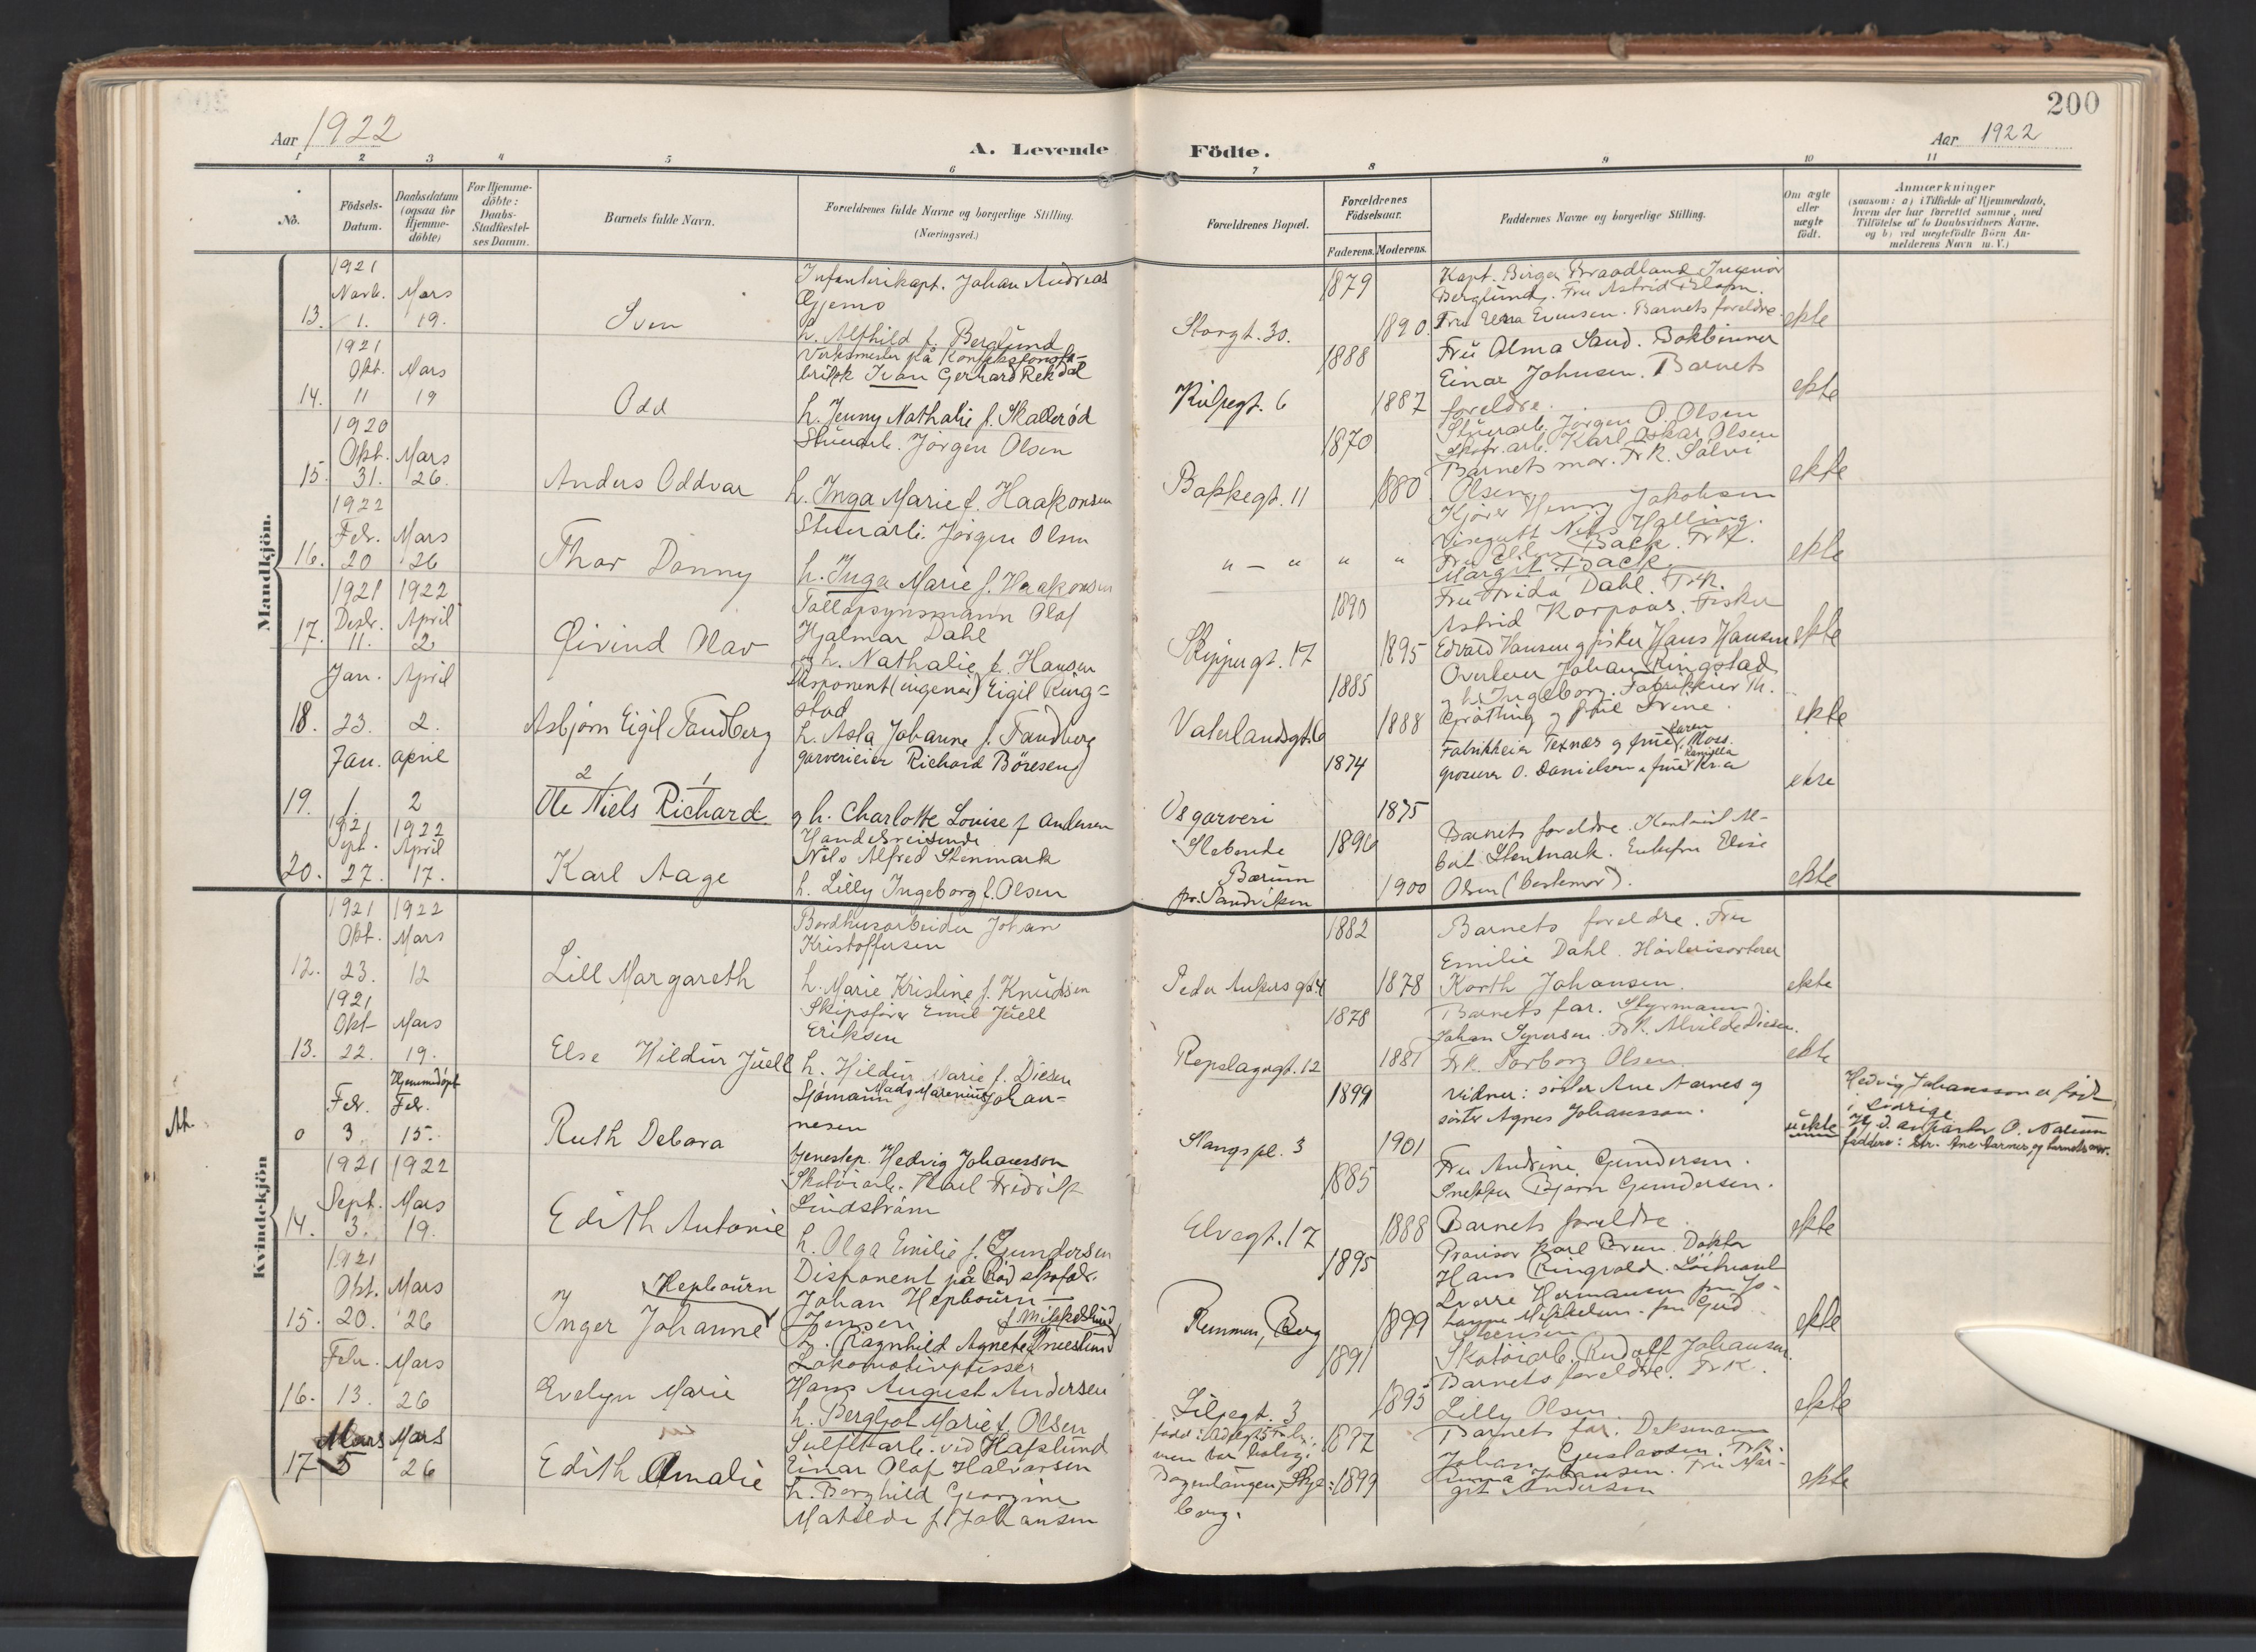 200
Aar 1922
A. Levende Födte.
Aar 1922
1 2 3 4 5 6 7 8 9 10 11
No.
Födsels-
Datum.
Daabsdatum
(ogsaa for
Hjemme-
döbte)
For Hjemme-
döbte:
Daabs-
Stadfæstel-
ses Datum.
Barnets fulde Navn.
Forældrenes fulde Navne og borgerlige Stilling.
(Næringsvei.)
Forældrenes Bopæl.
Forældrenes
Födselsaar.
Faderens. Moderens.
Faddernes Navne og borgerlige Stilling.
Om ægte
eller
uægte
födt.
Anmærkninger
(saasom: a) i Tilfælde af Hjemmedaab,
hvem der har forrettet samme, med
Tilföielse af to Daabsvidners Navne,
og b) ved uægtefödte Börn An-
melderens Navn m. V.)
Mandkjön.
13.
1921
Novb.
1.
Mars
19.
Sven
Infanterikapt. Johan Andreas
Gjemo
h. Alfhild f. Berglund
Storgt. 30.
1879
1890.
Kapt. Birger Braadland. Ingeniör
Berglund. Fru Astrid
Fru Evensen. Barnets foreldre.
ekte
14.
1921
Okt.
11
Mars
19
Odd
Verksmester på Konfeksjonsfa-
brikk Ivan Gerhard Rekdal
h. Jenny Nathalie f. Skallerød
Kilpegt. 6
1888
1887
Fru Alma Sand. Bokbinner
Einar Johnsen. Barnets
foreldre.
ekte
15.
1920
Okt.
31.
Mars
26.
Anders Oddvar
Stuerarb. Jörgen Olsen
h. Inga Marie f. Haakonsen
Bakkegt. 11
1870
1880
Stuerarb. Jörgen O. Olsen
Skofr. arb. Karl Oskar Olsen
Barnets mor. Frk. Solvi
Olsen
ekte
16.
1922
Febr.
20
Mars
26
Thor Donny
Stuerarb. Jörgen Olsen
h. Inga Marie f. Haakonsen
" — "
"
"
Kjörer Henry Jakobsen
Visegutt Nils Halling.
Fru Back. Frk.
Margit Back.
ekte
17.
1921
Desbr.
11.
1922
April
2
Øivind Olav
Tollopsynsmann Olaf
Hjalmar Dahl
h. Nathalie f. Hansen
Skippergt. 17
1890
1895
Fru Frida Dahl. Frk.
Astrid Korpaas. Fisker
Edvard Hansen og fisker Hans Hansen
ekte
18.
Jan.
23.
April
2.
Asbjörn Eigil Fandberg
Disponent (ingeniör) Eigil Ring-
stad
h. Asla Johanne f. Fandberg
Vaterlandsgt. 6
1885
1888
Overlærer Johan Ringstad
og h. Ingeborg. Fabrikkeier Th.
og frue Irene.
ekte
19.
Jan.
1.
april
2
2 1 1
Ole Niels Richard
garverieier Richard Böresen
g h. Charlotte Louise f Andersen
Os garveri
1874
1875
Fabrikkeier Texnæs og frue Karen, Moss.
grosserer O. Danielsen og frue Kamilla Kr.a
ekte
20.
1921
Sept.
27.
1922
April
17.
Karl Aage
Handelsreisende
Nils Alfred Stenmark
h. Lilly Ingeborg f. Olsen
Slebende
Bærum
pr. Sandviken
1896
1900
Barnets foreldre. Kontorist Al-
bert Stenmark. Enkefru Elise
Olsen (bestemor).
ekte
Kvindekjön
12.
1921
Okt.
23.
1922
Mars
12
Lill Margareth
Bordhusarbeider Johan
Kristoffersen
h. Marie Kristine f. Knudsen
Peder Ankers gt. 4
1882
1878
Barnets foreldre. Fru
Emilie Dahl. Hövlerisorterer
Korth Johansen.
ekte
13.
1921
Okt
22.
Mars
19.
Else Hildur Juell
Skipsförer Emil Juell
Eriksen
h. Hildur Marie f. Diesen
Repslagergt. 12
1878
1881
Barnets far. Styrmann
Johan Syversen. Frk. Alvilde Diesen.
Frk. Torborg Olsen.
ekte
0
Febr.
3
Hjemmedöpt
Febr.
15.
Ruth Debora
Sjömann Mads Marenius Johan-
nesen
tjenestep. Hedvig Johansson
Stangspl. 3
1899
1901
Vidner: söster Ane Aarnes og
söster Agnes Johansson.
uekte
Hedvig Johansson er födt
i Sverige
Hj. d. av pastor O.
faddere: Str. Ane Aarnes, og barnets mor.
14.
1921
Sept.
3.
1922
Mars
19.
Edith Antonie
Skotöiarb. Karl Fredrik
Lindström
h. Olga Emilie f. Gundersen
Elvegt. 17
1885
1888
Fru Andrine Gundersen.
Snekker Bjarn Gundersen.
Barnets foreldre.
ekte
15.
1921
Okt.
20.
Mars
26
Hepbourn
Inger Johanne
Disponent på Röd skofabr.
Johan Hepbourn
Jensen
h. Ragnhild Agnete f Mikkelslund
Remmen, Berg
1895
1899
Provisor Karl Brun. Doktor
Hans Ringvold. Löitnant
Sverre Hermansen fru Jo-
hanne Mikkelsen. fru Gerd
ekte
16.
Febr.
13.
Mars
26
Evelyn Marie
Lokomotivpusser
Hans August Andersen
h. Bergljot Marie f. Olsen
Liljegt. 3
1891
1895
Skotöiarb. Rudolf Johansen.
Barnets foreldre. Frk.
Lilly Olsen.
ekte
17
Mars
5
Mars
26
Edith Amalie
Sulfittarb. ved Hafslund
Einar Olaf Halvorsen
h. Borghild Georgine
Matilde f. Johansen
men har bolig:
Skje-
berg.
1897
1899
Barnets far. Deksmann
Johan Gustavsen. Frk.
Johansen. Fru Mar-
git Andersen
ekte